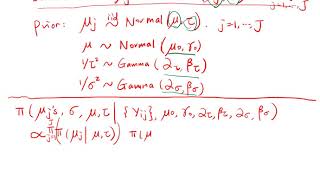 j=1,...,J
prior: μj iid~ Normal (μ, τ). j=1,...,J
μ ~ Normal (μ0, γ0)
1/τ² ~ Gamma (ατ, βτ)
1/σ² ~ Gamma (ασ, βσ)
π( μj's, σ, μ, τ | {Yij}, μ0, γ0, ατ, βτ, ασ, βσ)
∝ ∏_{j=1}^{J} π(μj | μ, τ) π(μ